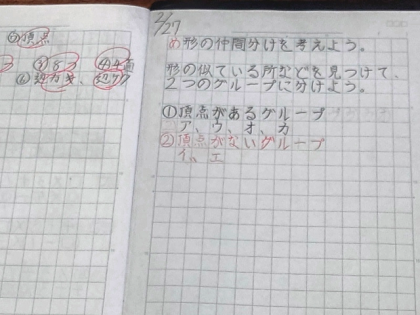 ⑤頂点
2/27
め形の仲間分けを考えよう。
形の似ている所などを見つけて、
2つのグループに分けよう。
①頂点があるグループ
ア、ウ、オ、カ
②頂点がないグループ
イ、エ